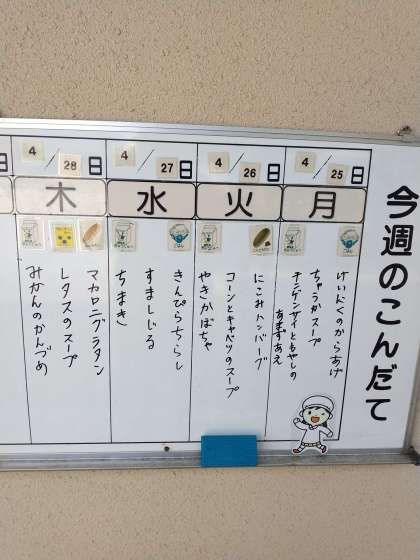 今週のこんだて
4/25日
月
けいにくのからあげ
ちゅうかスープ
チンゲンサイともやしの
あまずあえ
4/26日
火
にこみハンバーグ
コーンとキャベツのスープ
やきかぼちゃ
4/27日
水
きんぴらちらし
すましじる
ちまき
4/28日
木
マカロニグラタン
レタスのスープ
みかんのかんづめ
日